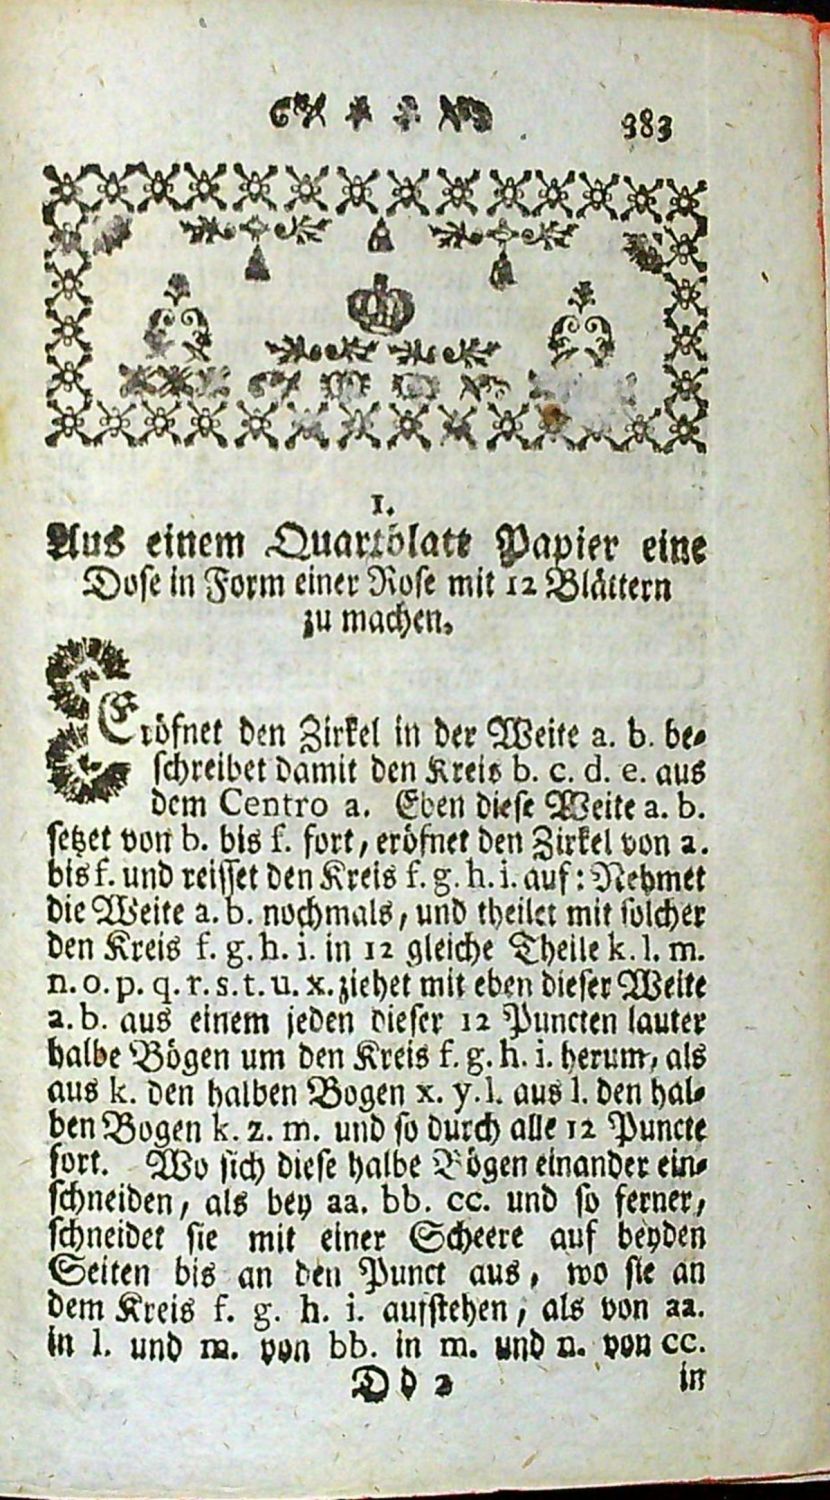 383
1.
Aus einem Quartblatt Papier eine
Dose in Form einer Rose mit 12 Blättern
zu machen.
Eröfnet den Zirkel in der Weite a. b. be-
schreibet damit den Kreis b. c. d. e. aus
dem Centro a. Eben diese Weite a. b.
setzet von b. bis f. fort, eröfnet den Zirkel von a.
bis f. und reisset den Kreis f. g. h. i. auf: Nehmet
die Weite a. b. nochmals, und theilet mit solcher
den Kreis f. g. h. i. in 12 gleiche Theile k. l. m.
n. o. p. q. r. s. t. u. x. ziehet mit eben dieser Weite
a. b. aus einem jeden dieser 12 Puncten lauter
halbe Bögen um den Kreis f. g. h. i. herum, als
aus k. den halben Bogen x. y. l. aus l. den hal-
ben Bogen k. z. m. und so durch alle 12 Puncte
fort. Wo sich diese halbe Bögen einander ein-
schneiden, als bey aa. bb. cc. und so ferner,
schneidet sie mit einer Scheere auf beyden
Seiten bis an den Punct aus, wo sie an
dem Kreis f. g. h. i. aufstehen, als von aa.
in l. und m. von bb. in m. und n. von cc.
D d 2 in